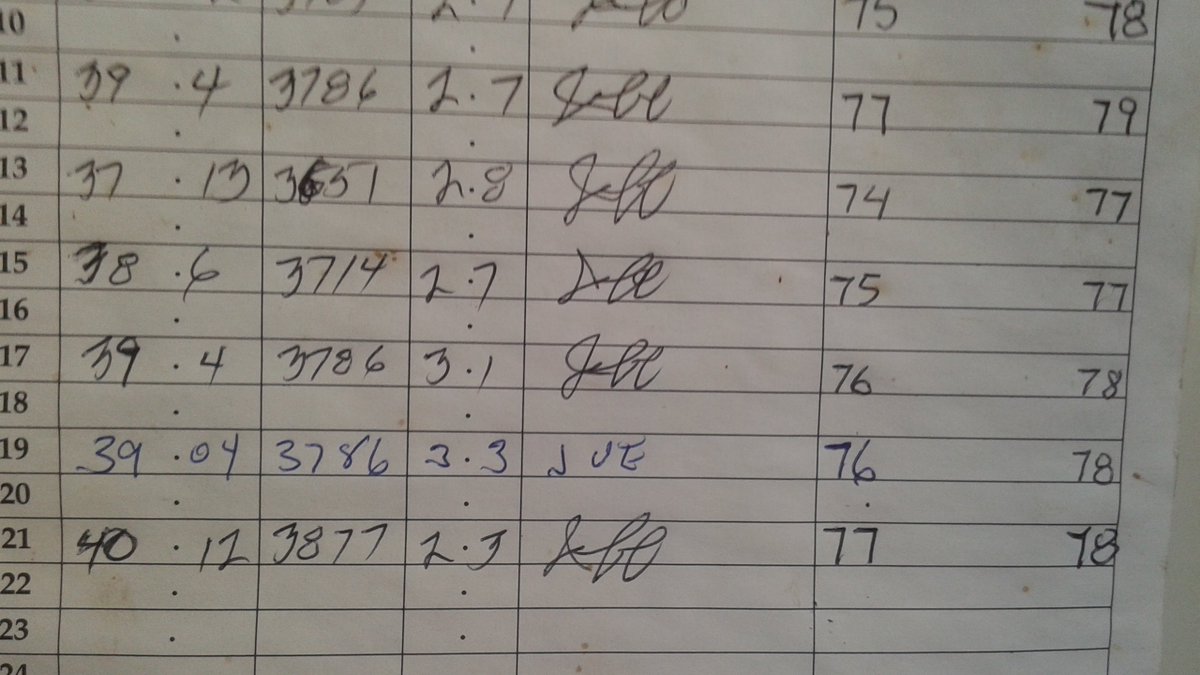 10 75 78
11 39 .4 3786 2.7 Jeff 77 79
12 . .
13 37 .13 3651 2.8 Jeff 74 77
14 . .
15 38 .6 3714 2.7 Jeff 75 77
16 . .
17 39 .4 3786 3.1 Jeff 76 78
18 . .
19 39 .04 3786 3.3 JOE 76 78
20 . . .
21 40 .12 3877 2.3 Jeff 77 78
22 . .
23 . .
24